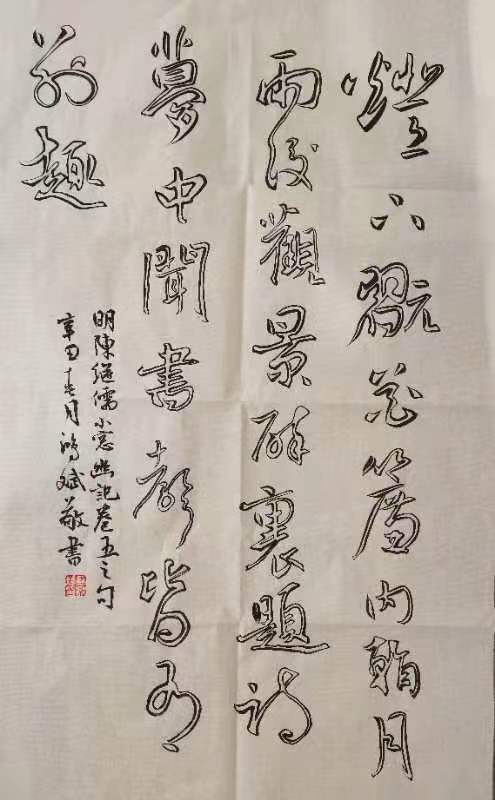 燈下翫花簾内看月
雨後觀景醉裏題詩
夢中聞書聲皆有
别趣
明陳繼儒小窗幽記卷五之句
辛丑十月鴻斌敬書